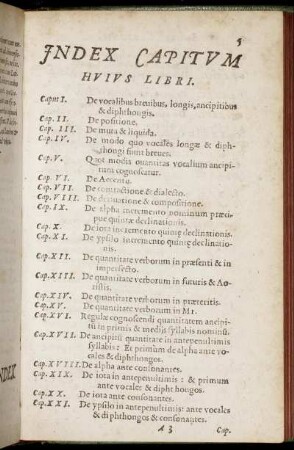 5
INDEX CAPITVM
HVIVS LIBRI.
Capitu I. De vocalibus breuibus, longis, ancipitibus
& diphthongis.
Cap. II. De positione.
Cap. III. De muta & liquida.
Cap. IV. De modo quo vocales longæ & diph-
thongi sunt breues.
Cap. V. Quot modis quantitas vocalium ancipi-
tum cognoscatur.
Cap. VI. De Accentu.
Cap. VII. De contractione & dialecto.
Cap. VIII. De deriuatione & compositione.
Cap. IX. De alpha incremento nominum præci-
pue quintæ declinationis.
Cap. X. De iota incremento quintę declinationis.
Cap. XI. De ypsilo incremento quintę declinatio-
nis.
Cap. XII. De quantitate verborum in præsenti & in
imperfecto.
Cap. XIII. De quantitate verborum in futuris & Ao-
ristis.
Cap. XIV. De quantitate verborum in præteritis.
Cap. XV. De quantitate verborum in MI.
Cap. XVI. Regulæ cognoscendi quantitatem ancipi-
tū in primis & medijs syllabis nominū
Cap. XVII. De ancipitū quantitate in antepenultimis
syllabis: Et primùm de alpha ante vo-
cales & diphthongos.
Cap. XVIII. De alpha ante consonantes.
Cap. XIX. De iota in antepenultimis: & primum
ante vocales & diphthongos.
Cap. XX. De iota ante consonantes.
Cap. XXI. De ypsilo in antepenultimis: ante vocales
& diphthongos & consonantes.
A 3 Cap.
NDEX